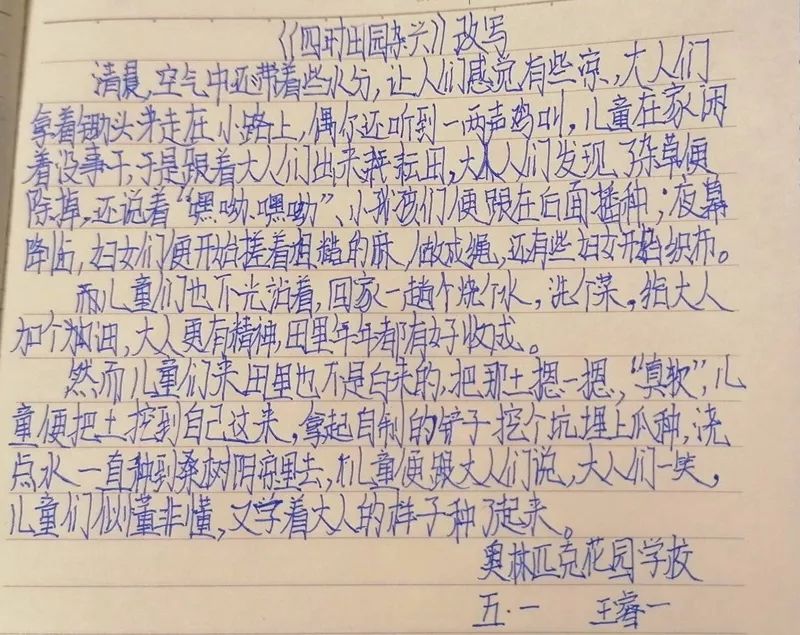 《《四时田园杂兴》改写
清晨,空气中还带着些水分,让人们感觉有些凉,大人们
拿着锄头来走在小路上,偶尔还听到一两声鸡叫,儿童在家闲
着没事干,于是跟着大人们出来耕耘田,大人们发现了杂草便
除掉,还说着“嘿呦、嘿呦”、小孩们便跟在后面播种;夜幕
降临,妇女们便开始搓着粗糙的麻,做成绳,还有些妇女开始织布。
而儿童们也不光站着,回家一趟个烧个水,洗个菜,给大人
加个油,大人更有精神,田里年年都有好收成。
然而儿童们来田里也不是白来的,把那土摁一摁,“真软”,儿
童便把土挖到自己这来,拿起自制的铲子挖个坑埋上瓜种,浇
点水一直种到桑树阴凉里去,儿童便跟大人们说,大人们一笑,
儿童们似懂非懂,又学着大人的样子种了起来。
奥林匹克花园学校
五·一 王睿一